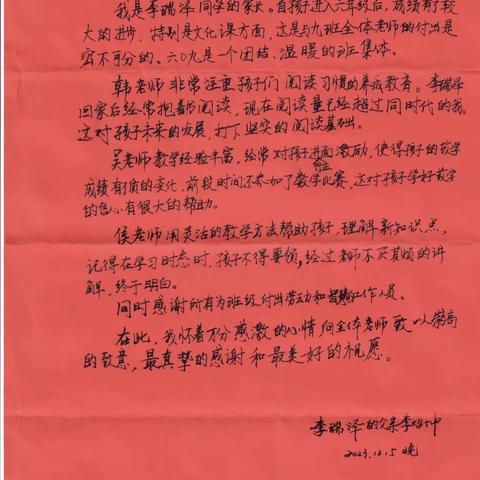 我是李瑞泽同学的家长。自孩子进入六年级后，成绩有了较
大的进步，特别是文化课方面，这是与九班全体老师的付出是
密不可分的。六〇九是一个团结、温暖的班集体。
韩老师非常注重孩子们阅读习惯的养成教育。李瑞泽
回家后经常抱着书阅读，现在阅读量已经超过同时代的我。
这对孩子未来的发展，打下坚实的阅读基础。
吴老师教学经验丰富，经常对孩子进行激励，使得孩子的数学
成绩有质的变化，前段时间不参加了数学比赛，这对孩子学好数学
的信心有很大的帮助。
侯老师用灵活的教学方法帮助孩子，理解新知识点，
记得在学习时态时，孩子不得要领，经过老师不厌其烦的讲
解，终于明白。
同时感谢所有为班级付出劳动和智慧工作人员。
在此，我怀着万分感激的心情向全体老师致以崇高
的致意，最真挚的感谢和最美好的祝愿。
李瑞泽的父亲李坤
2023.12.5 晚